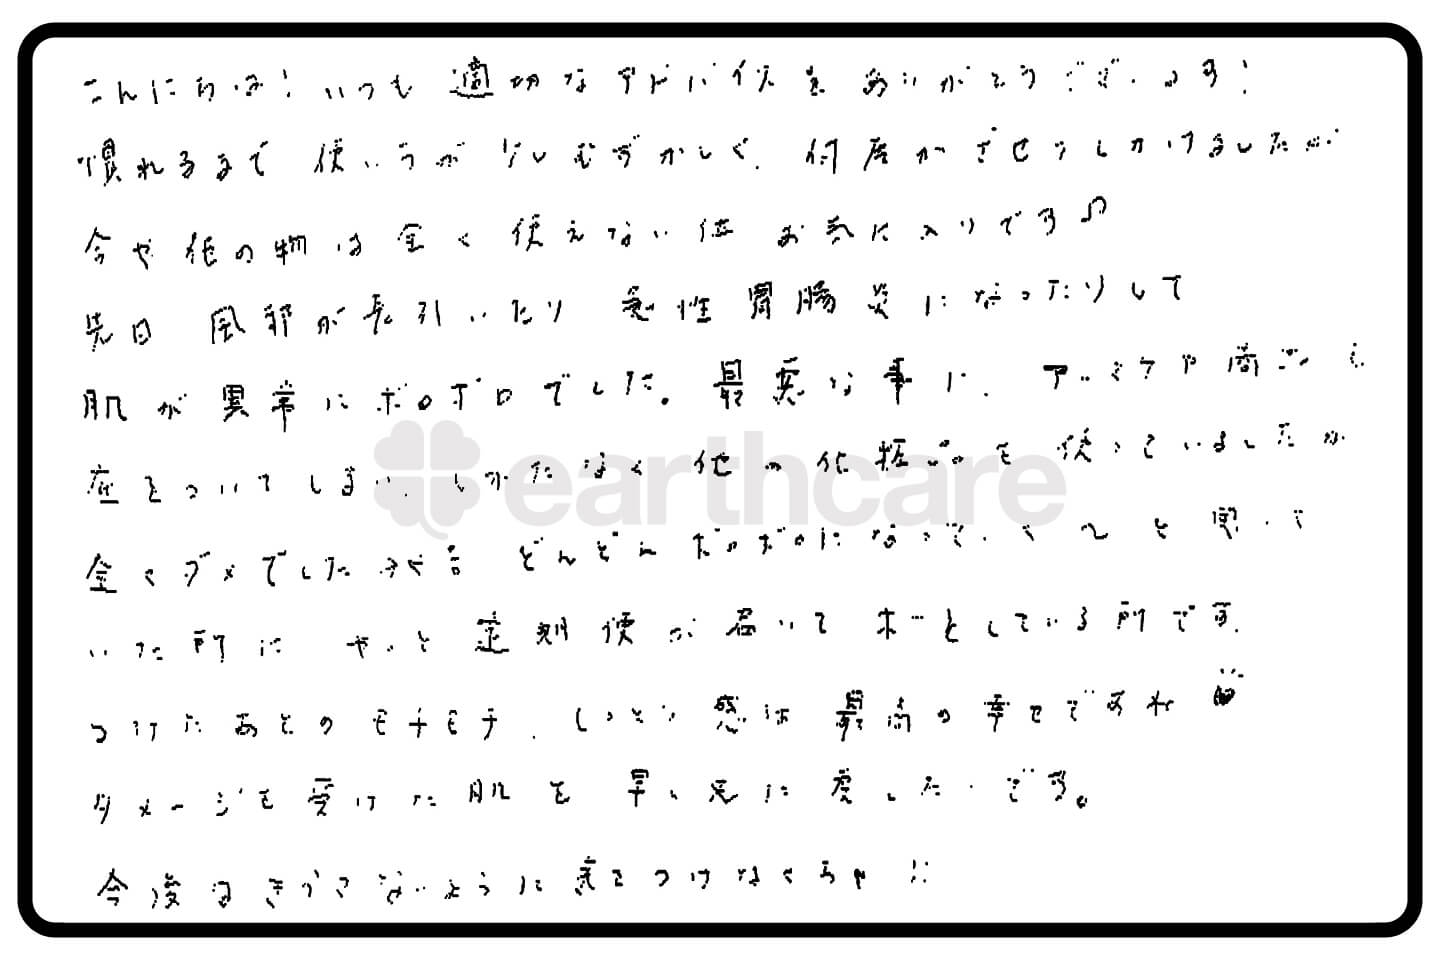 こんにちは!いつも適切なアドバイスをありがとうございます!
慣れるまで使い方が少しむずかしく、何度かざせつしかけましたが
今や他の物は全く使えない位お気に入りです♪
先日風邪が長引いたり急性胃腸炎になったりして
肌が異常にボロボロでした。最悪な事に、アースケア商品も
底をついてしまい、しかたなく他の化粧品を使っていましたが
全くダメでした 結局どんどんボロボロになって、く〜と思って
いた所に やっと定期便が届いてホーッとしている所です。
つけたあとのモチモチ、しっとり感は最高の幸せですね
ダメージを受けた肌を早く元に戻したいです。
今後はきらさないように気をつけなくちゃ!!
earthcare